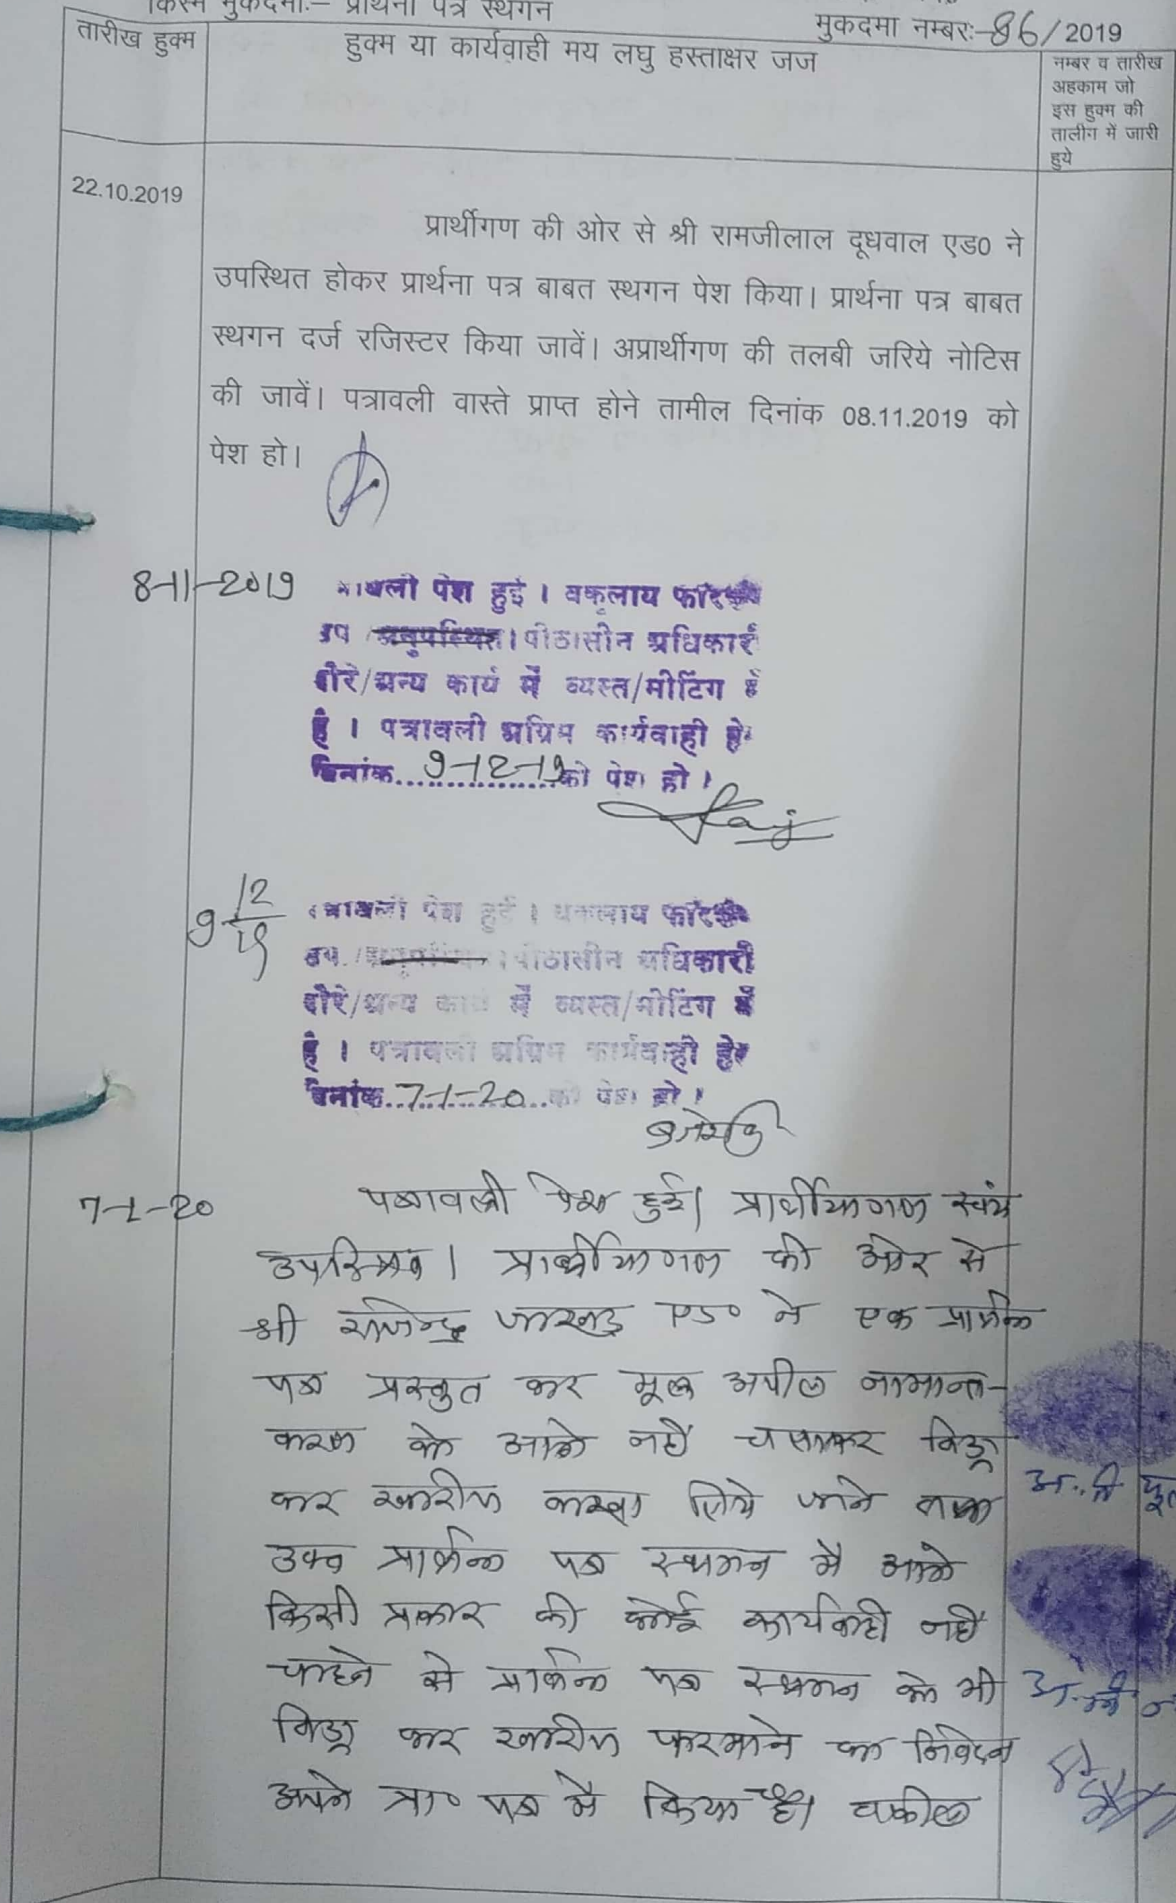 किस्म मुकदमाः– प्रार्थना पत्र स्थगन
मुकदमा नम्बरः-86/2019
तारीख हुक्म
हुक्म या कार्यवाही मय लघु हस्ताक्षर जज
नम्बर व तारीख
अहकाम जो
इस हुक्म की
तालीग में जारी
हुये
22.10.2019
प्रार्थीगण की ओर से श्री रामजीलाल दूधवाल एड0 ने
उपस्थित होकर प्रार्थना पत्र बाबत स्थगन पेश किया। प्रार्थना पत्र बाबत
स्थगन दर्ज रजिस्टर किया जावें। अप्रार्थीगण की तलबी जरिये नोटिस
की जावें। पत्रावली वास्ते प्राप्त होने तामील दिनांक 08.11.2019 को
पेश हो।
8-11-2019
पेश हुई । वकलाय
उप अनुपस्थित। पीठासीन अधिकारी
दौरे/अन्य कार्य में व्यस्त/मीटिंग में
है । पत्रावली अग्रिम कार्यवाही हेतु
दिनांक...9-12-19...को पेश हो ।
9 12/19
पेश हुई । वकलाय
उप. पीठासीन अधिकारी
दौरे/अन्य कार्य में व्यस्त/मीटिंग में
है । पत्रावली अग्रिम कार्यवाही हेतु
दिनांक...7-1-20...को पेश हो ।
7-1-20
पत्रावली पेश हुई। प्रार्थीयागण स्वयं
उपस्थित। प्रार्थीयागण की ओर से
श्री राजेन्द्र जाखड़ एड० ने एक प्रार्थना
पत्र प्रस्तुत कर मूल अपील नामान्त-
करण को आगे नहीं चलाकर विड्रा
कर खारीज करवा लिये जाने तथा
उक्त प्रार्थना पत्र स्थगन मै आगे
किसी प्रकार की कोई कार्यवाही नहीं
चाहने से प्रार्थना पत्र स्थगन को भी
विड्रा कर खारीज फरमाने का निवेदन
अपने प्रा० पत्र मे किया है। वकील